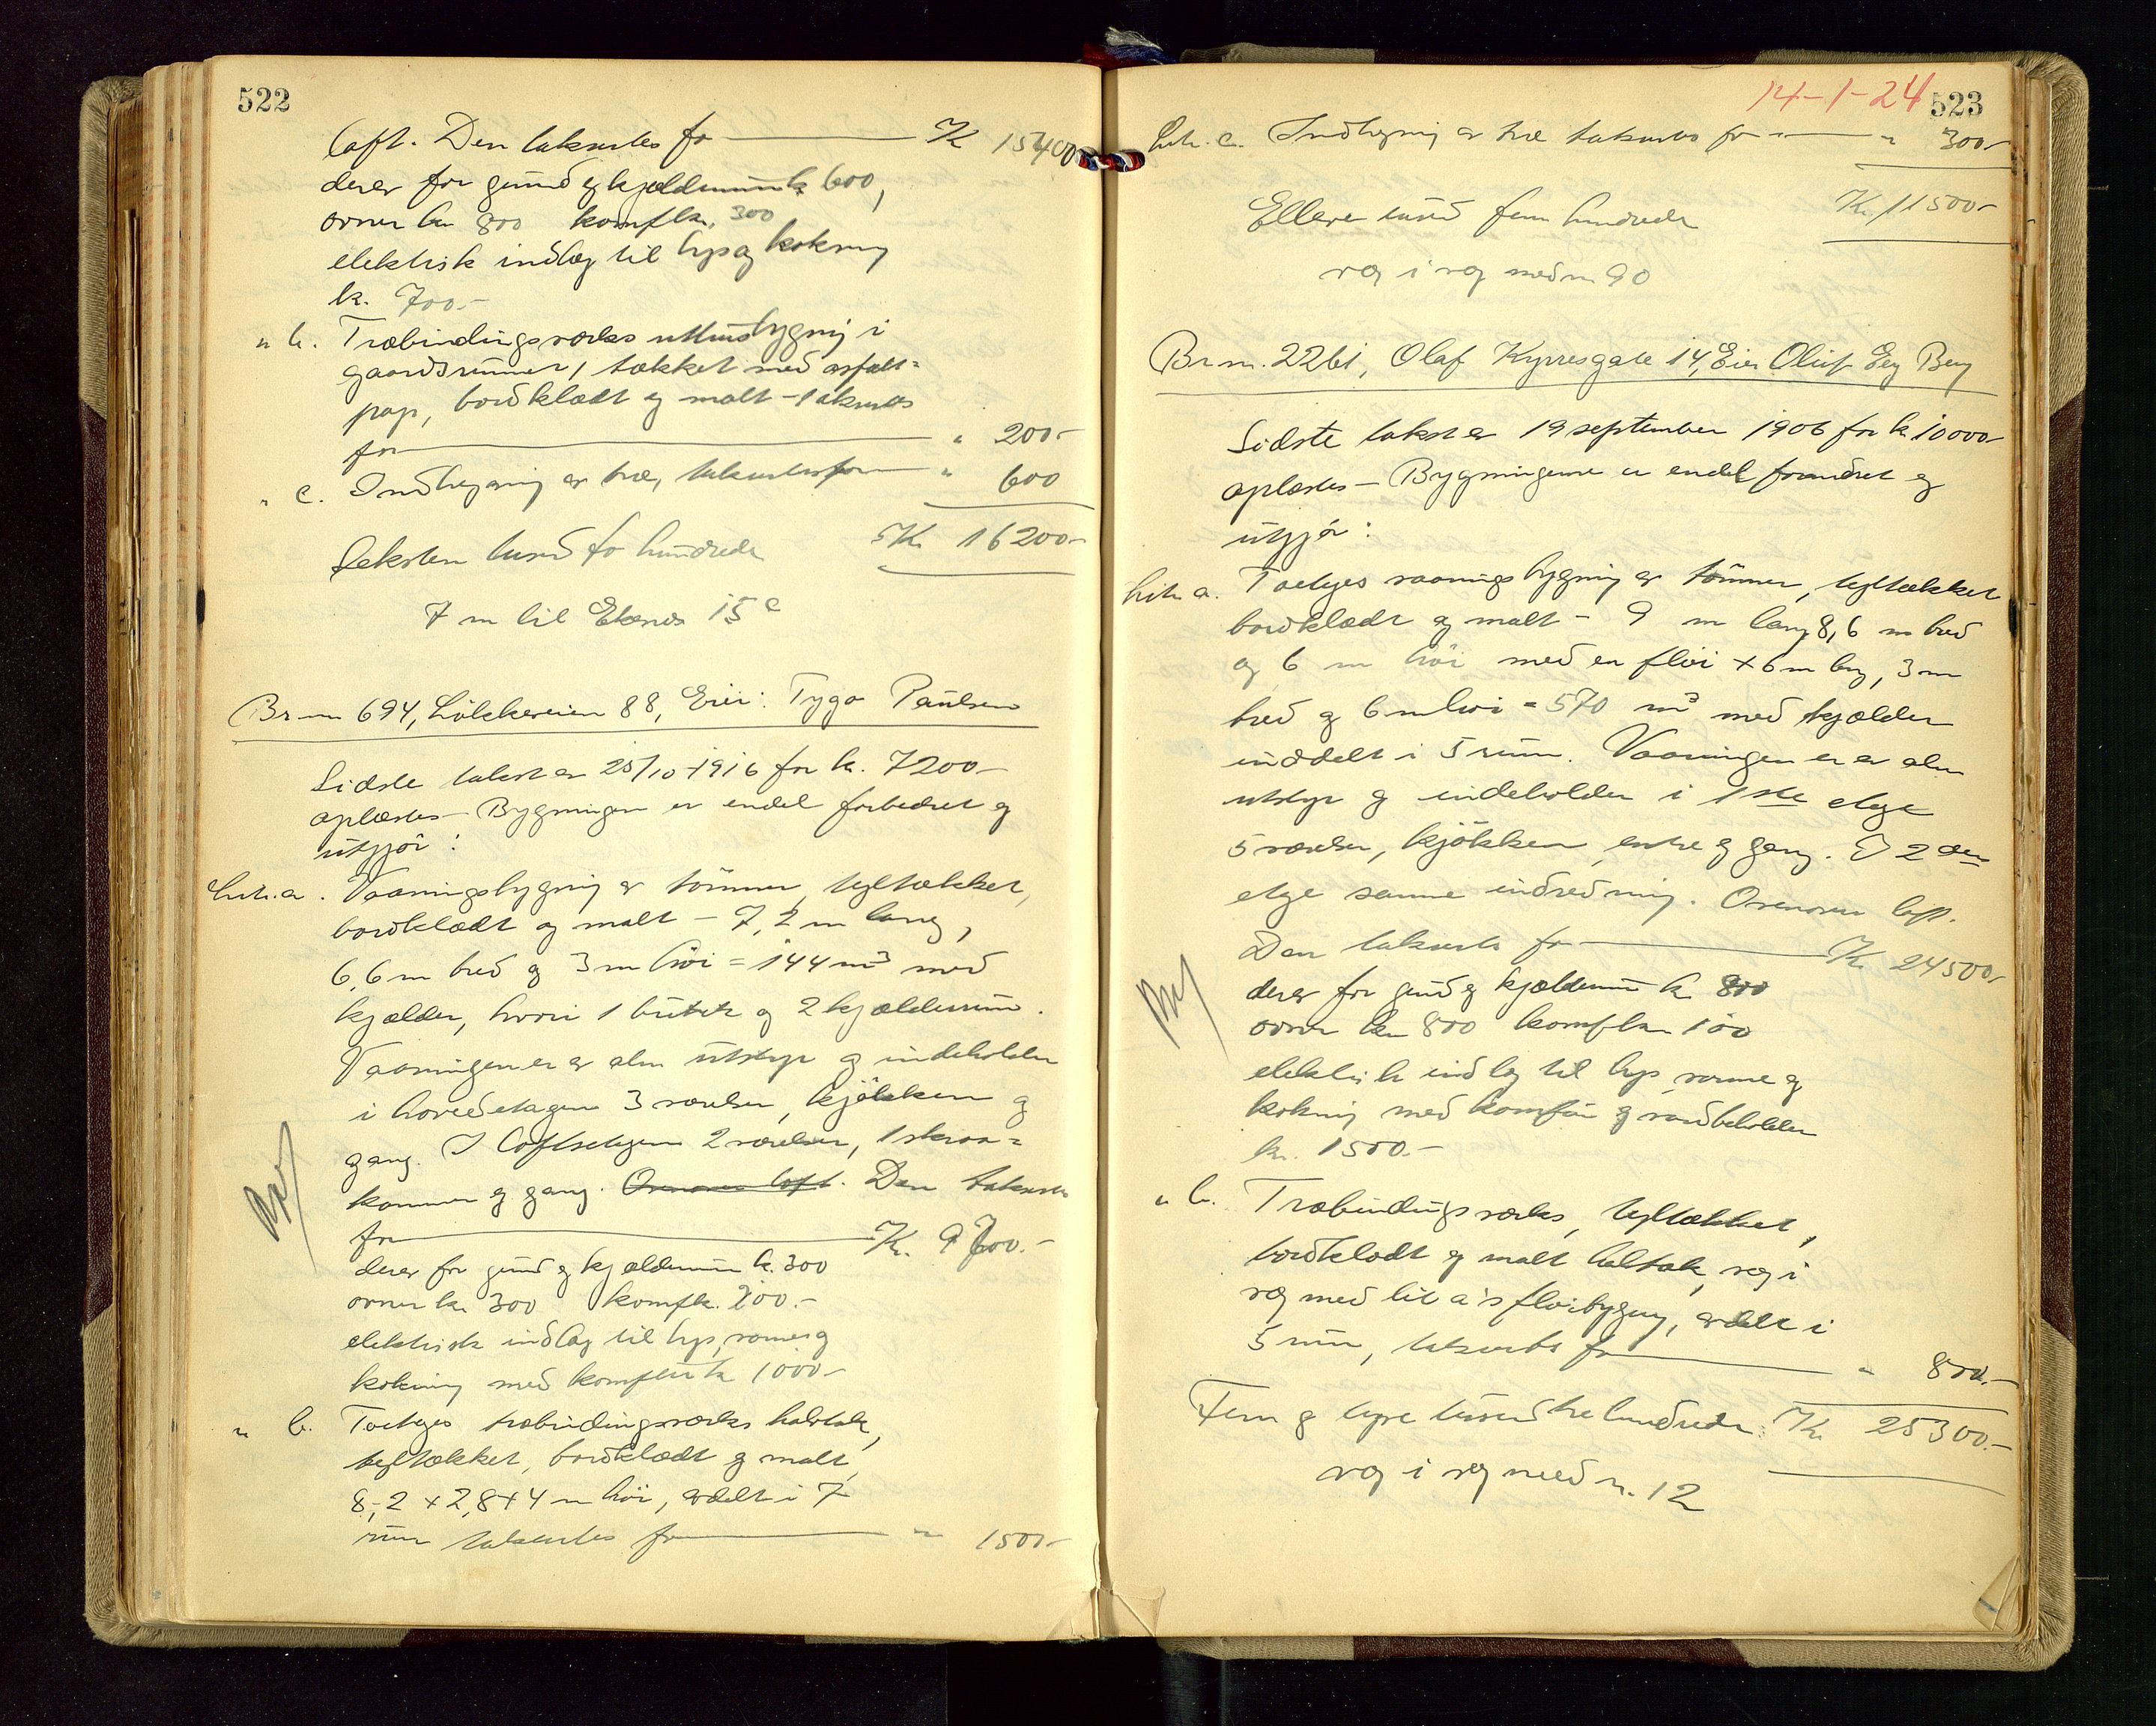 522
loft. Den takseres for ——— Kr 15400
derav for grund og kjælderrum k 600,
ovner kr 800 komf kr. 300
elektrisk indlæg til lys og kokning
kr. 700.-
" b. Træbindingsverks uthusbygning i
gaardsrummet, tækket med asfalt=
pap, bordklædt og malt - takseres
for ——— " 200-
" c. Indhegning av træ, takseres for ——— " 600
Seksten tusend to hundrede Kr 16200-
7 m til Ekenes 15 c
Br no 694, Lökkeveien 88, Eier: Tygo Paulsen
Sidste takst er 25/10-1916 for kr. 7200-
oplæstes - Bygningen er endel forbedret og
utgjör:
Litr. a. Vaaningsbygning av tömmer, tegltækket,
bordklædt og malt - 7,2 m lang,
6,6 m bred og 3 m höi = 144 m³ med
kjælder, hvori 1 butik og 2 kjælderrum.
Vaaningen er av alm utstyr og indeholder
i hovedetagen 3 værelser, kjökken og
gang. I loftsetagen 2 værelser, 1 skraa=
kammer og gang. Ovenover loft. Den takseres
for ——— Kr. 9700.-
derav for grund og kjælderrum k. 300
ovner kr 300 komf k. 200.-
elektrisk indlæg til lys, varme og
kokning med komfur k 1000-
" b. Toetages træbindingsverks halvtak,
tegltækket, bordklædt og malt,
8,2 x 2,8 x 4 m höi, avdelt i 7
rum takseres for ——— " 1500-
14-1-24
523
Litr. c. Indhegning av træ takseres for ——— " 300-
Kr 11500-
Elleve tusend fem hundrede
væg i væg med nr 90
Br nr. 2261, Olaf Kyrresgate 14, Eier Oluf Berg
Sidste takst er 19 september 1906 for k 10000-
oplæstes - Bygningerne er endel forandret og
utgjör:
Litr a. Toetages vaaningsbygning av tömmer, tegltækket
bordklædt og malt - 9 m lang 8,6 m bred
og 6 m höi med en flöi x 6 m lang, 3 m
bred og 6 m höi = 570 m³ med kjælder
inddelt i 5 rum. Vaaningen er av alm
utstyr og indeholder i 1ste etage
5 værelser, kjökken, entre og gang. I 2den
etage samme indredning. Ovenover loft.
Den takseres for ——— Kr 24500-
derav for grund og kjælderrum k 800
ovner kr 800 komf kr 100
elektrisk indlæg til lys, varme og
kokning med komfur og vandbeholder
kr. 1500.-
" b. Træbindingsverks, tegltækket,
bordklædt og malt halvtak, væg i
væg med lit a's flöibygning, avdelt i
5 rum, takseres for ——— " 800.-
Fem og tyve tusend tre hundrede: Kr 25300.-
væg i væg med nr. 12